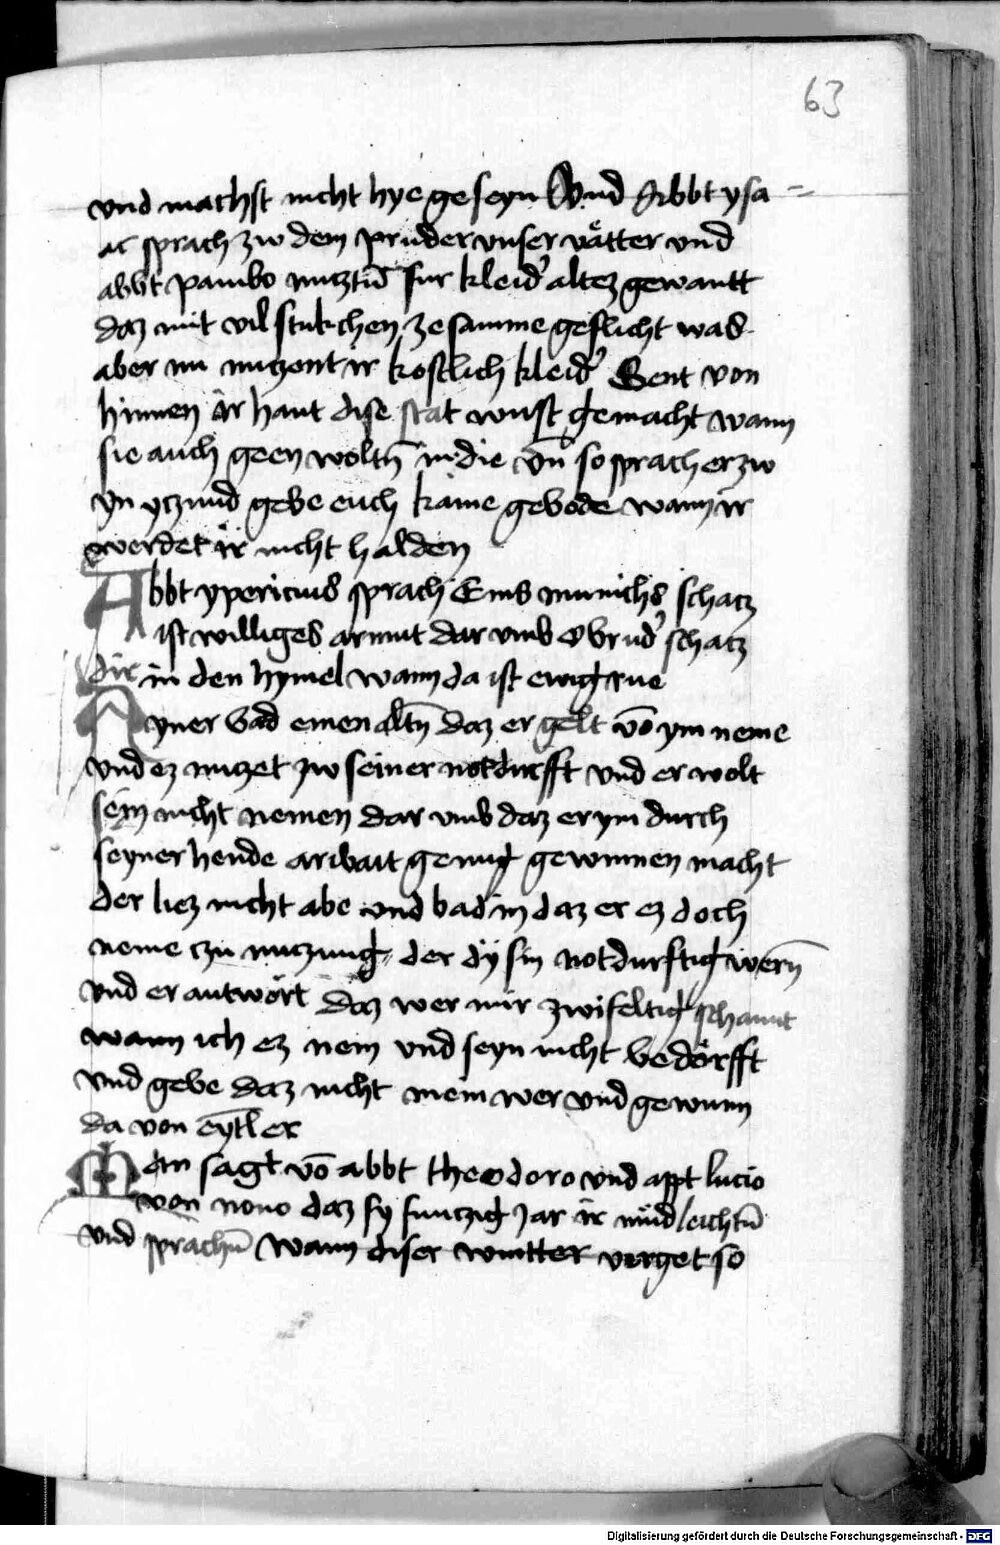 63
vnd machst nicht hye geseyn Vnd Abbt ysa =
ac sprach zw dem pruder vnser vätter vnd
abbt pambo nucztn̄ fur kleid' altez gewantt
daz mit vil stukchen ze samme geflicht was
aber nu nuczent ir kostlich kleid' Gent von
hinnen ir habt dise stat wust gemacht wann
sie auch geen woltn̄ in die vn̄ so sprach er zw
yn yczund gebe euch kaine gebode wann ir
werdet ir nicht halden
Abbt ypericius sprach Eins munichs schacz
ist williges armut dar vmb o brud' schacz
dir in den hymel wann da ist ewig rue
Ayner bad einen altn̄ daz er gelt vō ym neme
vnd ez nuczet zw seiner notdurfft vnd er wolt
sein nicht nemen dar vmb daz er ym durch
seyner hende aribait genug gewinnen macht
der liez nicht abe vnd bad in daz er ez doch
neme czu nuczung der dy sin notdurftig wern̄
vnd er antwort daz wer mir zwifeltig schamt
wann ich ez nem vnd seyn nicht bedorfft
vnd gebe daz nicht mein wer vnd gewunn
da von eytl er
Man sagt vō abbt theodoro vnd appt lucio
von nono daz sy funczig jar ir müd leichtn̄
vnd sprachn̄ Wann diser wintter verget so
Digitalisierung gefördert durch die Deutsche Forschungsgemeinschaft - DFG